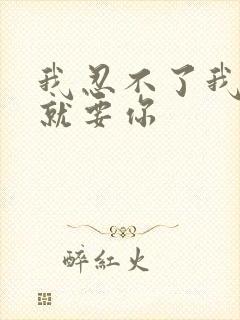 我忍不了我
就要你
醉红火